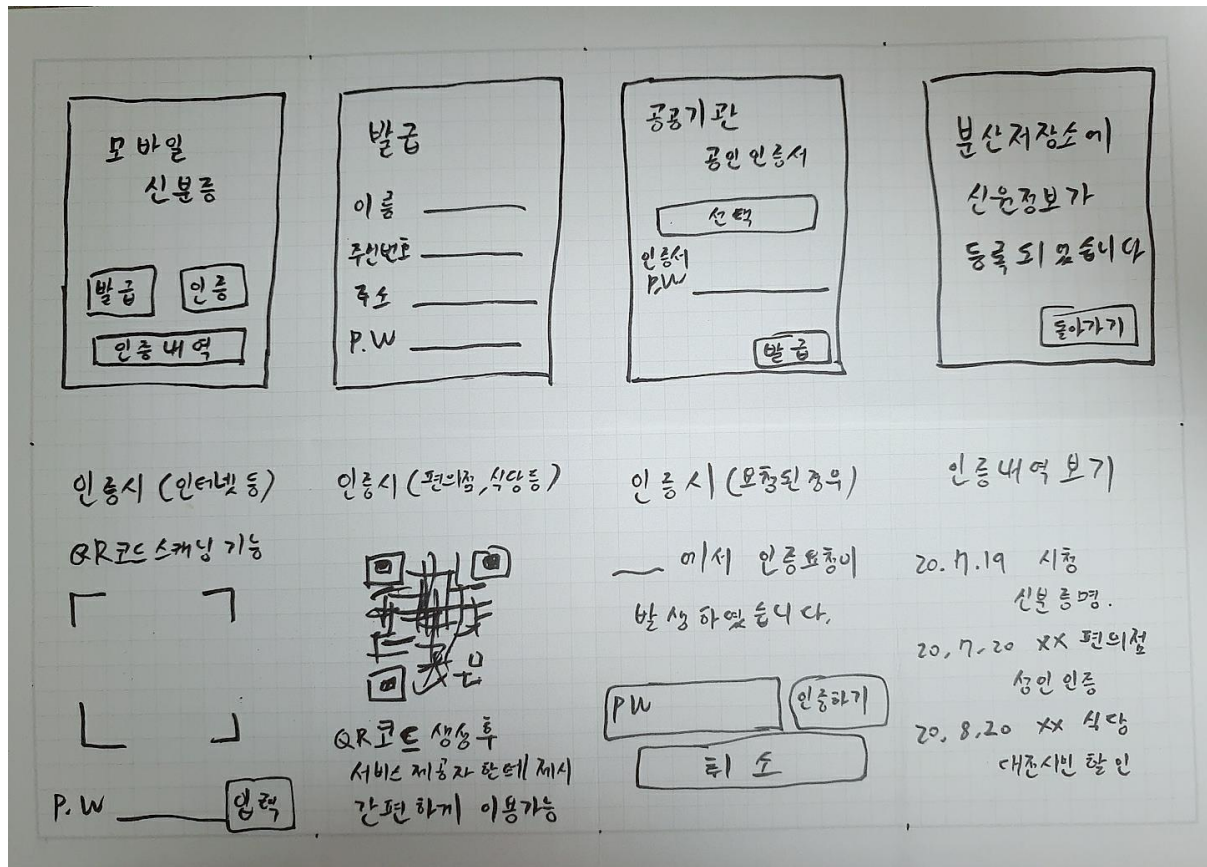 모바일
신분증
발급
인증
인증내역
발급
이름
주민번호
주소
P.W
공공기관
공인인증서
선택
인증서
P.W
발급
분산저장소에
신원정보가
등록되었습니다
돌아가기
인증시 (인터넷 등)
QR코드 스캐닝 기능
P.W
입력
인증시 (편의점, 식당 등)
QR코드 생성 후
서비스 제공자 한테 제시
간편하게 이용가능
인증시 (요청된 경우)
에서 인증요청이
발생하였습니다.
PW
인증하기
취소
인증내역 보기
20.7.19 시청
신분증명.
20.7.20 XX 편의점
성인 인증
20.8.20 XX 식당
대전시민 할인